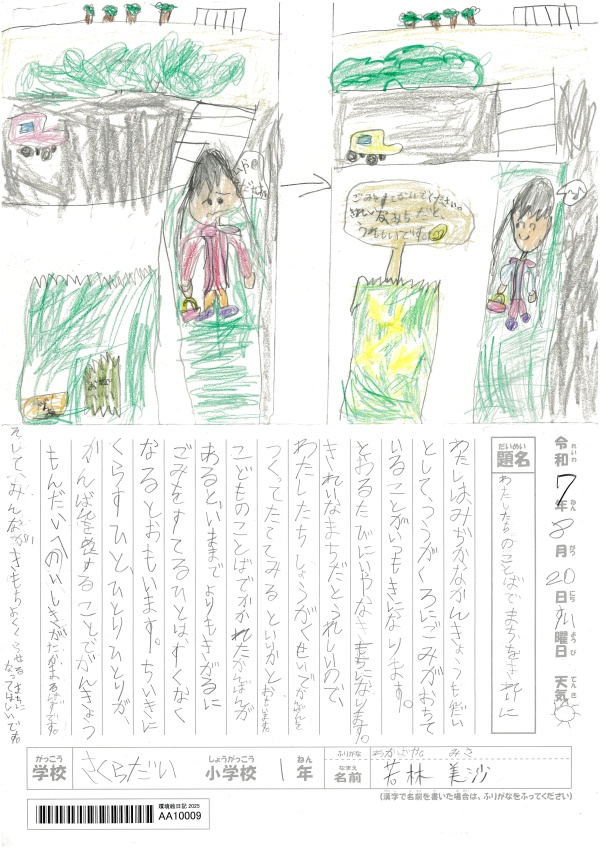 ごみをすてないでください。
きれいなまちだと、
うれしいです。
令和7年8月20日すい曜日 天気
れいわ ねん がつ にち ようび てんき
だいめい
題名
わたしたちのことばでまちをき麗に
わたしはみぢかなかんきょうもんだい
として、つうがくろにごみがおちて
いることがいつもきになります。
とおるたびにいやなき持ちになります。
きれいなまちだとうれしいので、
わたしたちしょうがくせいでかんばんを
つくってたててみるといいかとおもいます。
こどものことばでかかれたかんばんが
あると、いままでよりもきがるに
ごみをすてるひとはすくなく
なるとおもいます。ちいきに
くらすひと、ひとりひとりが、
かんばんを ることでかんきょう
もんだいへのいしきがたかまるはずです。
そして、みんながきもちよくくらせるまちに
なってほしいです。
がっこう
学校
さくらだい
しょうがっこう
小学校
1
ねん
年
ふりがな
わかばやし みさ
なまえ
名前
若林 美沙
(漢字で名前を書いた場合は、ふりがなをふってください)
環境絵日記 2025
AA10009